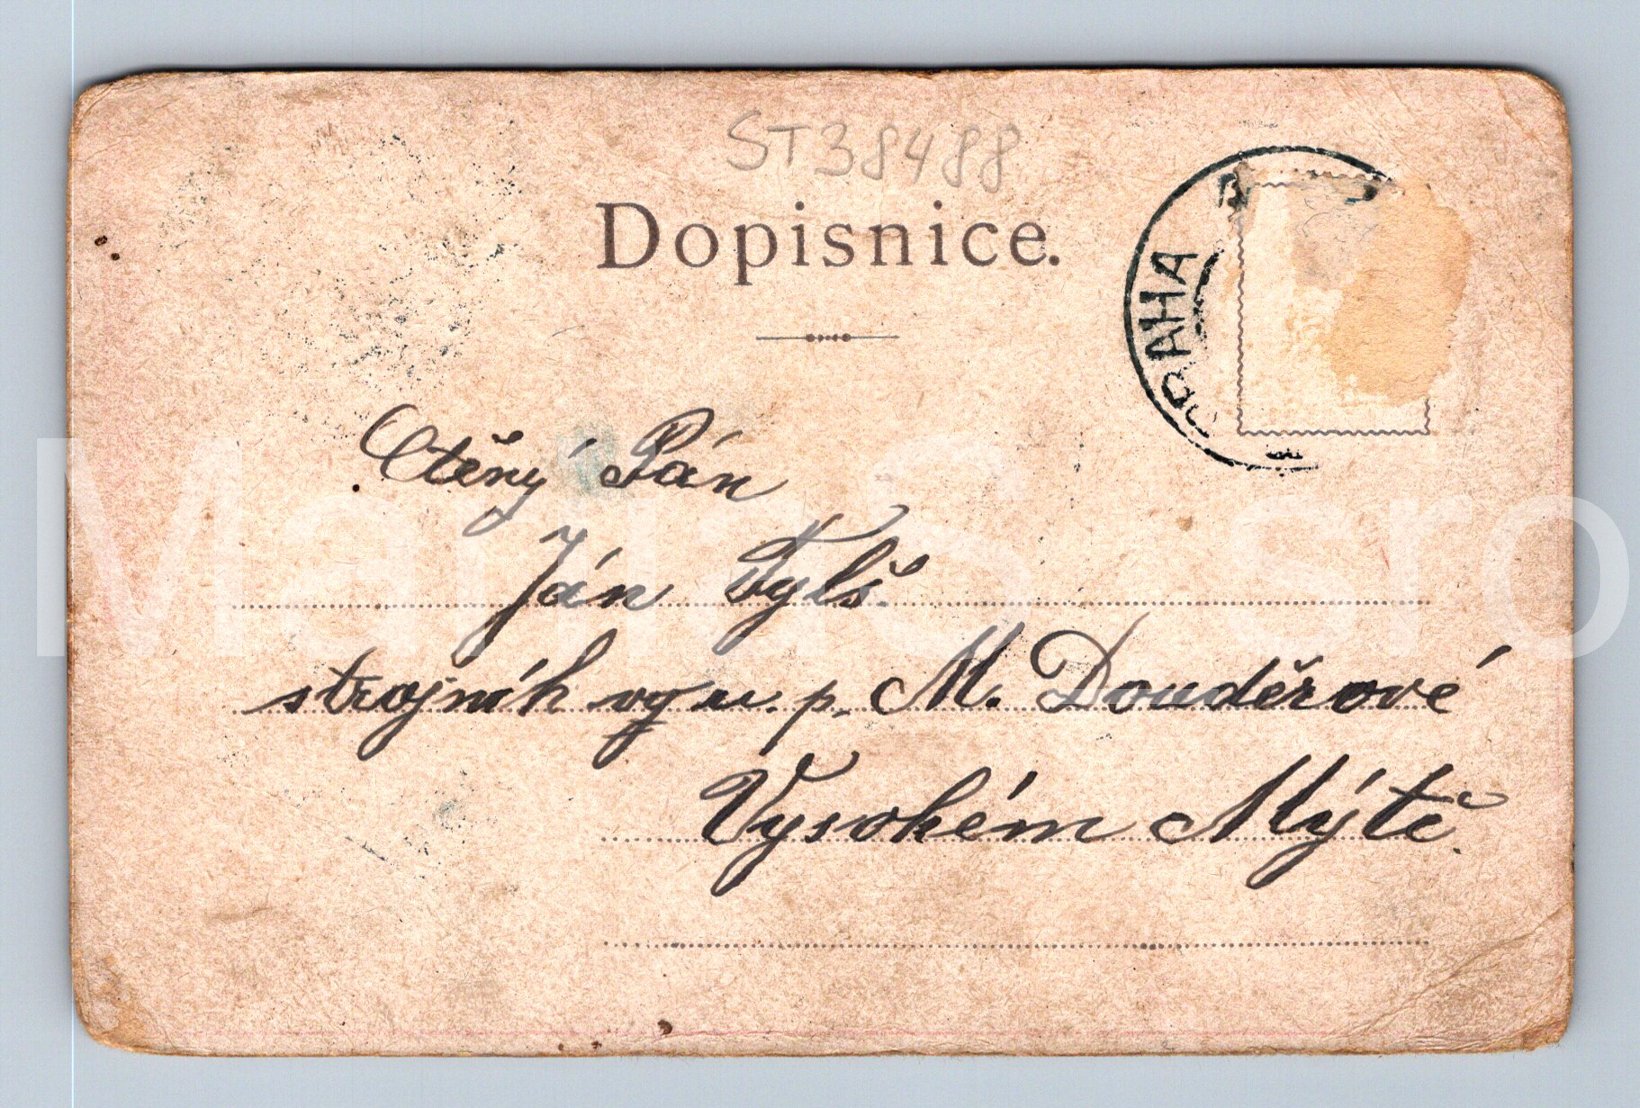 ST38488
Dopisnice.
PRAHA
Ctěný Pán
Ján Vylš
strojník vyu. p. M. Douděrové
Vysokém Mýtě.
MariaS sro